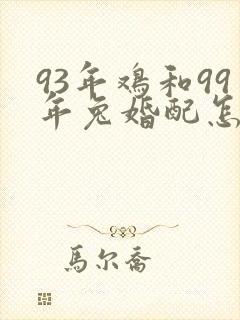 93年鸡和99
年兔婚配怎
馬尔喬